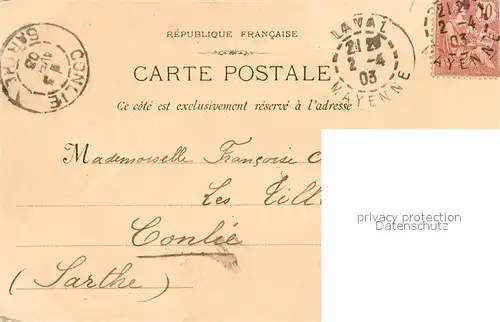 RÉPUBLIQUE FRANÇAISE
CARTE POSTALE
Ce côté est exclusivement réservé à l'adresse
LAVAL
2 - 4
03
MAYENNE
2 - 4
03
AYENNE
10
CONLIE
03
SARTHE
Mademoiselle Françoise
Les
Conlie
(Sarthe)
privacy protection
Datenschutz